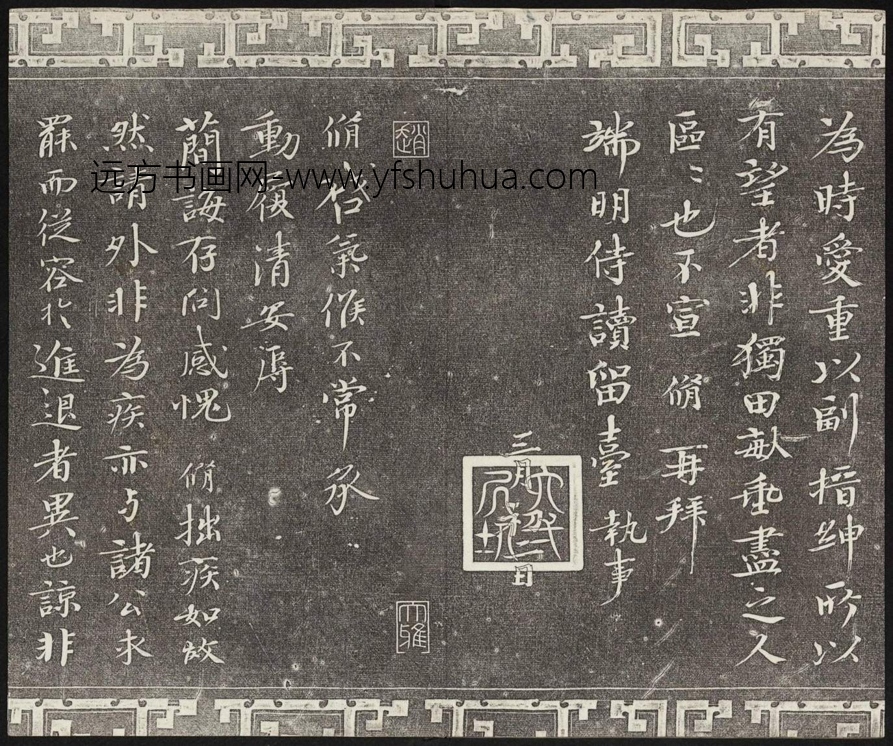 為時愛重以副搢紳所以
有望者非獨田畝垂盡之人
區〻也不宣 脩 再拜
端明侍讀留臺 執事
三月 日
趙
脩啓氣候不常承
動履清安辱
蕳誨存問感愧 脩拙疾如故
然請外非為疾亦与諸公求
罷而從容於進退者異也諒非
远方书画网-www.yfshuhua.com